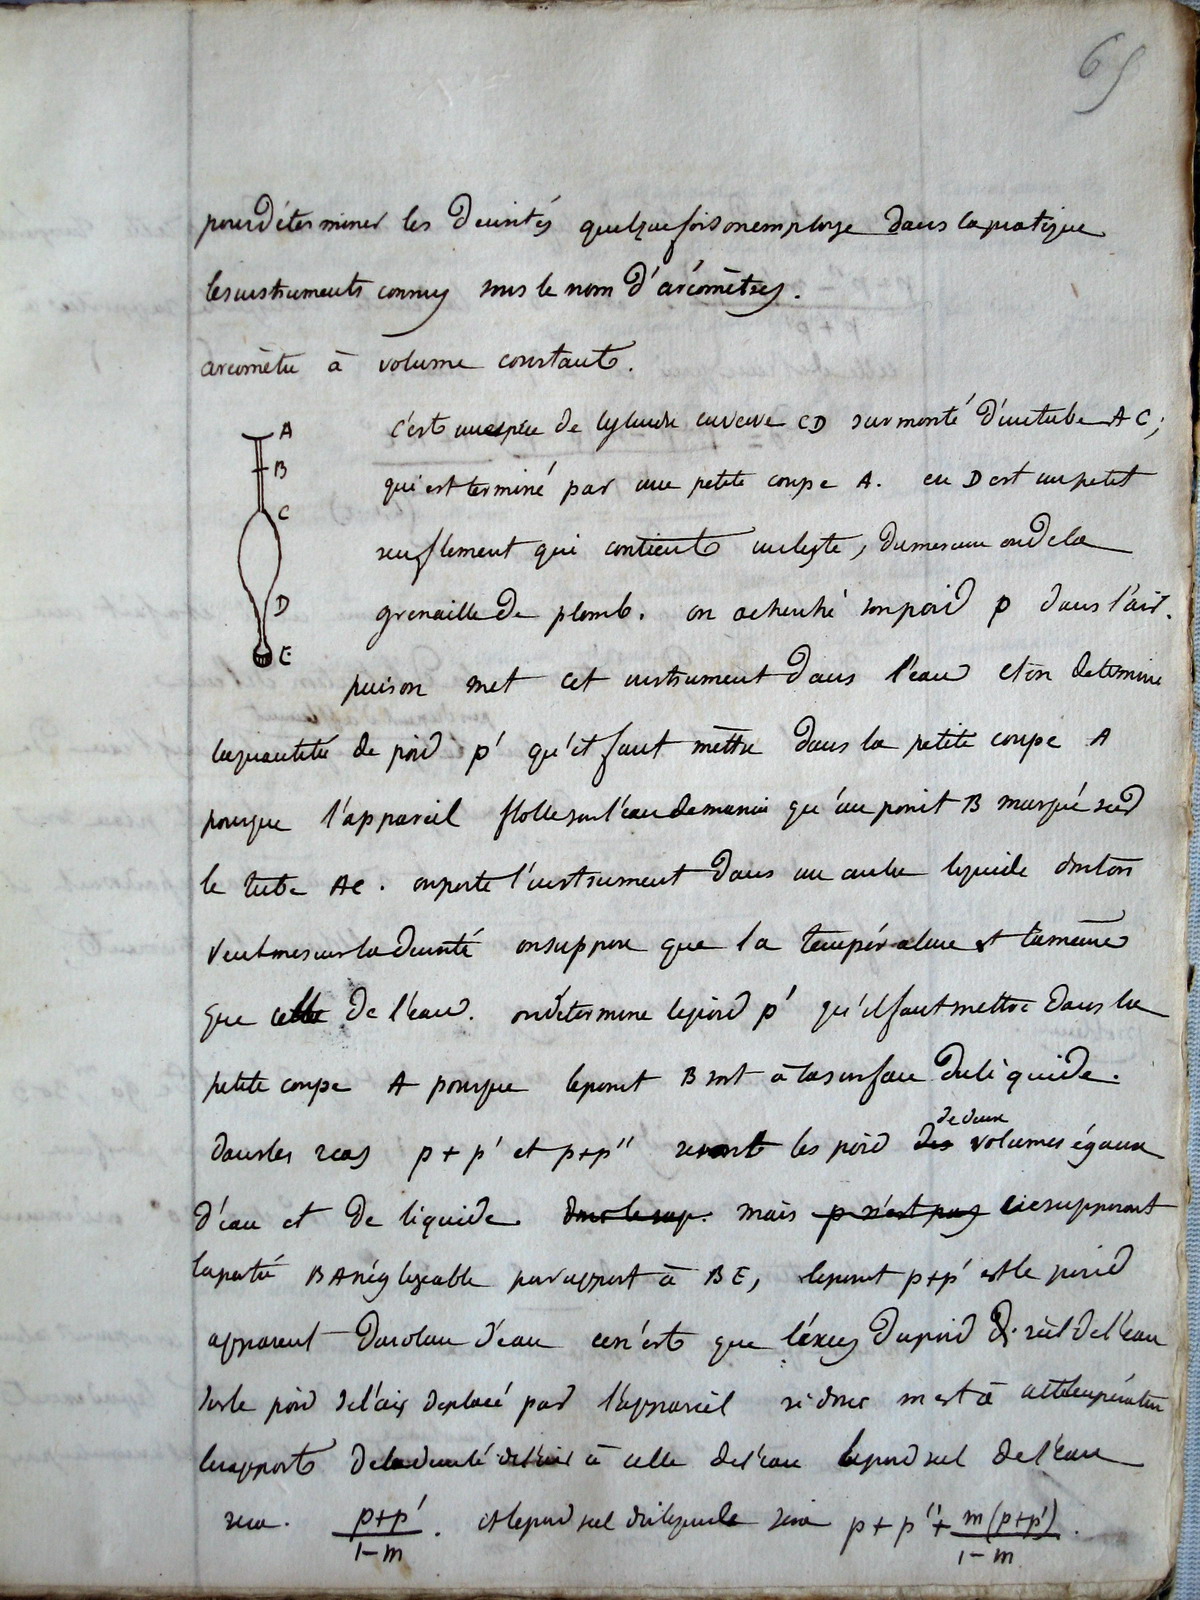 65
pour déterminer les densités quelquefois on employe dans la pratique
les instruments connus sous le nom d'aréomètres.
areomètre à volume constant.
c'est une espèce de cylindre en verre CD surmonté d'un tube AC;
A
B
C
D
E
qui est terminé par une petite coupe A. en D est un petit
renflement qui contient un leste, du mercure ou de la
grenaille de plomb. on a cherché son poid p dans l'air.
puis on met cet instrument dans l'eau et on determine
la quantité de poid p' qu'il faut mettre dans la petite coupe A
pour que l'appareil flotte sur l'eau de manière qu'au point B marqué sur
le tube AC. on porte l'instrument dans un autre liquide dont on
veut mesurer la densité on suppose que la température est la même
que celle de l'eau. on détermine le poid p' qu'il faut mettre dans la
petite coupe A pour que le point B soit à la surface du liquide.
dans les 2 cas p+p' et p+p'' seront les poid des de deux volumes égaux
d'eau et de liquide. mais p n'est pas en supposant
la partie BA négligeable par rapport à BE, le point p+p' est le poid
apparent du volume d'eau ce n'est que l'éxcés du poid réel de l'eau
sur le poid de l'air deplacé par l'appareil si donc m est à cette température
le rapport de la densité de l'air à celle de l'eau le poid réel de l'eau
sera. p+p'/1-m. et le poid réel du liquide sera p+p''+ m(p+p')/1-m.